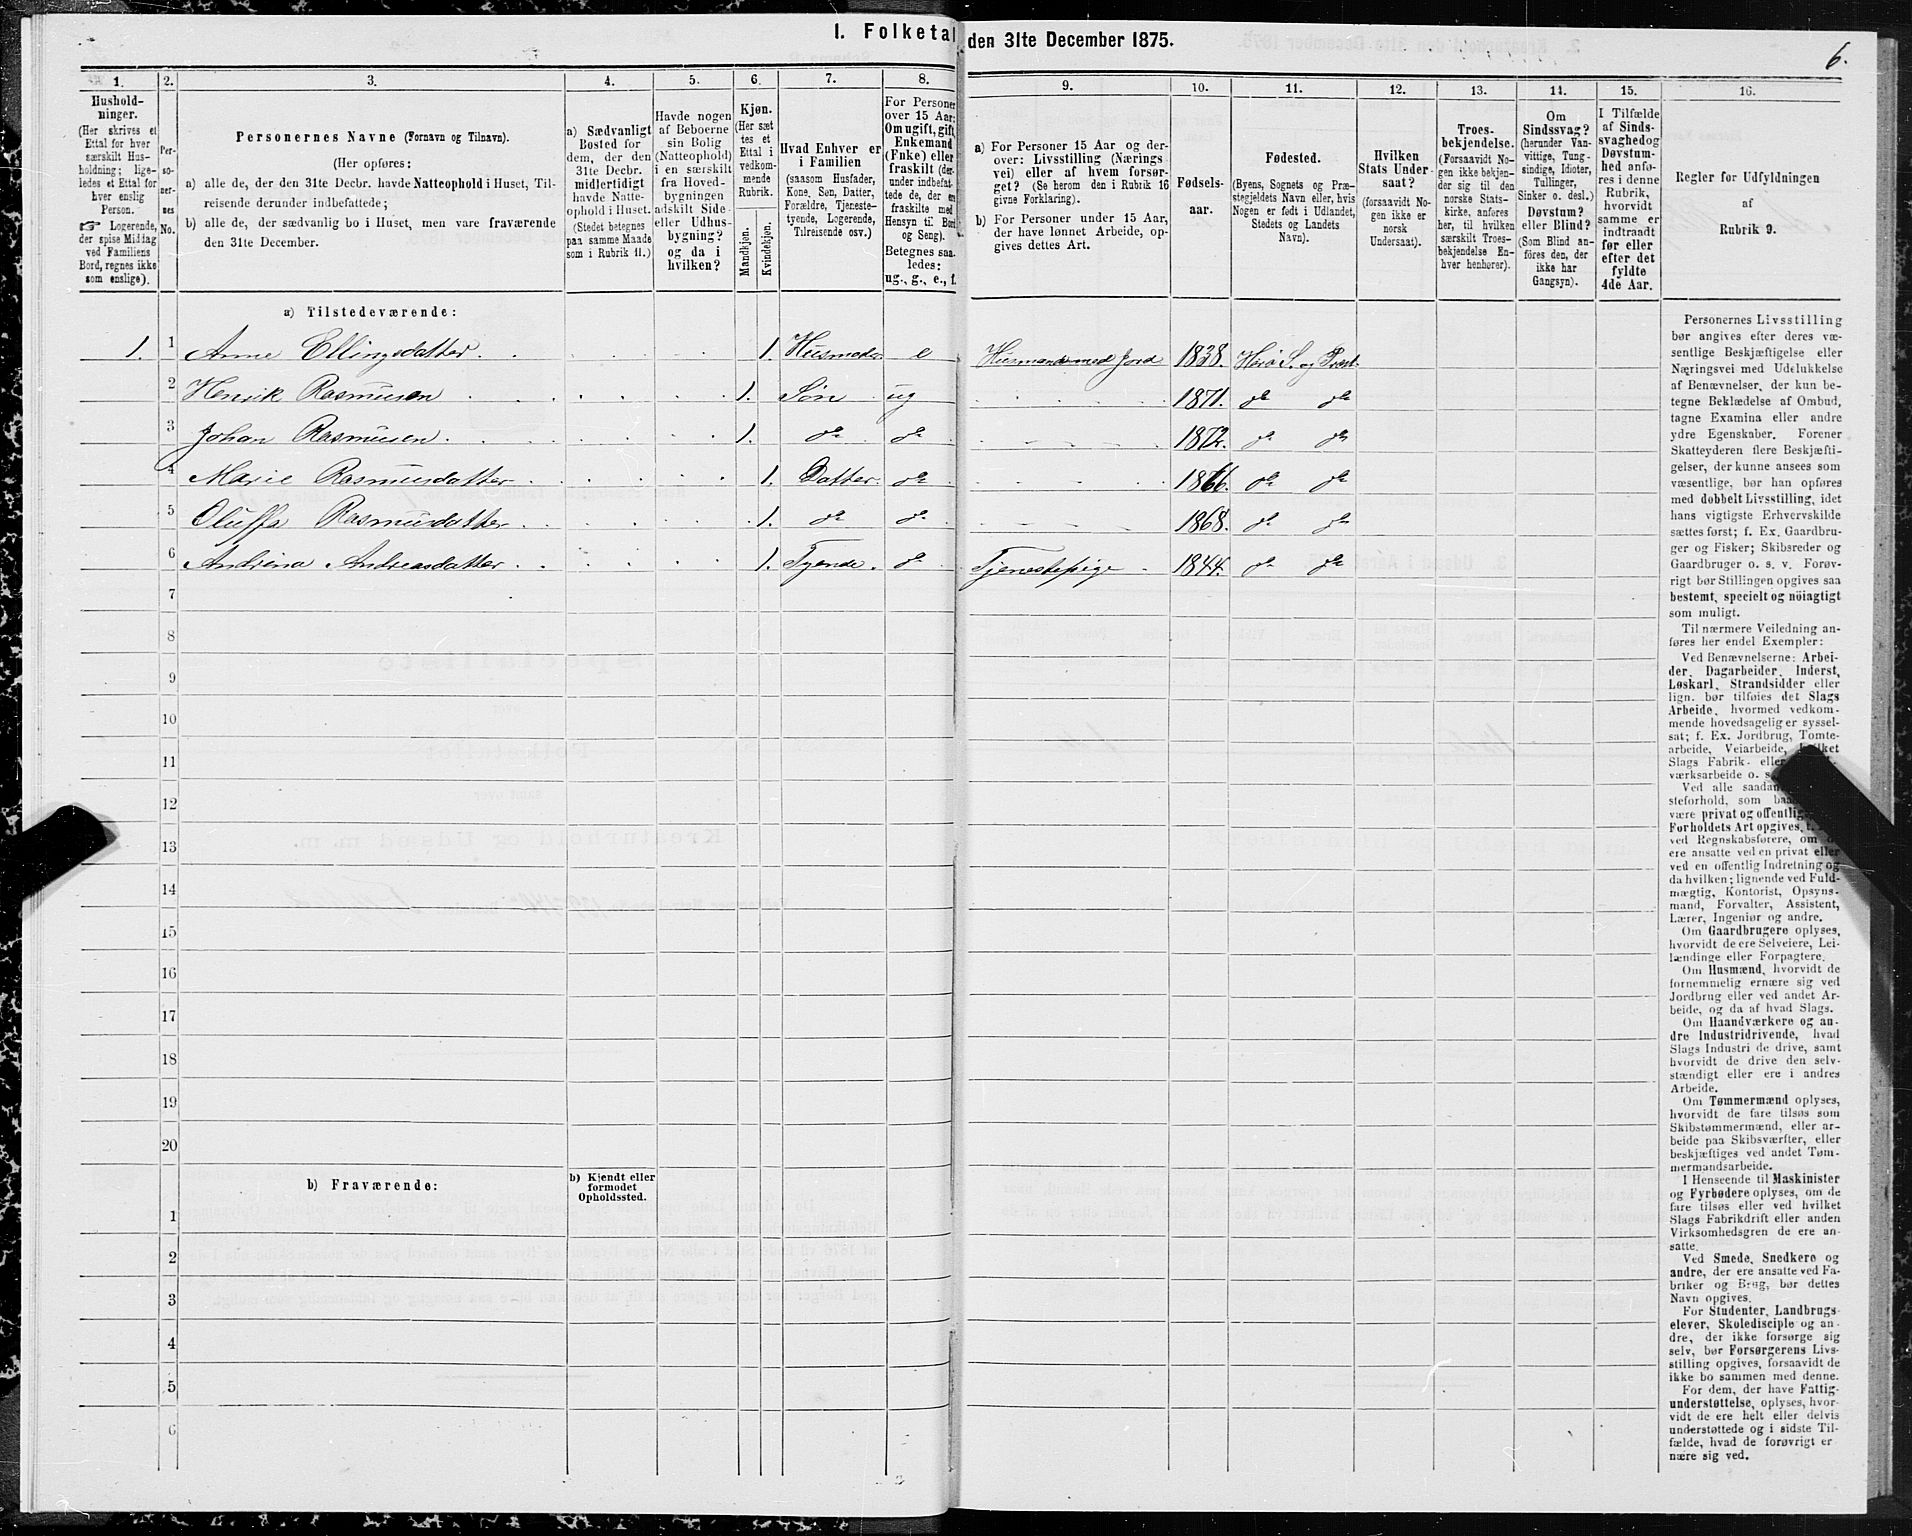 I. Folketal den 31te December 1875.
6.
1.
2.
3.
4.
5.
6.
7.
8.
9.
10.
11.
12.
13.
14.
15.
16.
Hushold-
ninger.
(Her skrives et
Ettal for hver
særskilt Hus-
holdning; lige-
ledes et Ettal for
hver enslig
Person.
☞ Logerende,
der spise Middag
ved Familiens
Bord, regnes ikke
som enslige).
Per-
so-
ner-
nes
No.
Personernes Navne (Fornavn og Tilnavn).
(Her opføres:
a) alle de, der den 31te Decbr. havde Natteophold i Huset, Til-
reisende derunder indbefattede;
b) alle de, der sædvanlig bo i Huset, men vare fraværende
den 31te December.
a) Sædvanligt
Bosted for
dem, der den
31te Decbr.
midlertidigt
havde Natte-
ophold i Huset.
(Stedet betegnes
paa samme Maade
som i Rubrik 11.)
Havde nogen
af Beboerne
sin Bolig
(Natteophold)
i en særskilt
fra Hoved-
bygningen
adskilt Side-
eller Udhus-
bygning?
og da i
hvilken?
Kjøn.
(Her sæt
tes et
Ettal i
vedkom-
mende
Rubrik.
Mandkjøn.
Kvindekjøn.
Hvad Enhver er
i Familien
(saasom Husfader,
Kone, Søn, Datter,
Forældre, Tjeneste-
tyende, Logerende,
Tilreisende osv.)
For Personer
over 15 Aar:
Om ugift, gift,
Enkemand
(Enke) eller
fraskilt (der-
under indbefat-
tede de, der er
fraskilte med
Hensyn til Bord
og Seng).
Betegnes saa-
ledes:
ug., g., e., f.
a) For Personer 15 Aar og der-
over: Livsstilling (Nærings
vei) eller af hvem forsør-
get? (Se herom den i Rubrik 16
givne Forklaring).
b) For Personer under 15 Aar,
der have lønnet Arbeide, op-
gives dettes Art.
Fødsels-
aar.
Fødested.
(Byens, Sognets og Præ-
stegjeldets Navn eller, hvis
Nogen er født i Udlandet,
Stedets og Landets
Navn).
Hvilken
Stats Under-
saat?
(forsaavidt No-
gen ikke er
norsk
Undersaat).
Troes-
bekjendelse.
(Forsaavidt No-
gen ikke bekjen-
der sig til den
norske Stats-
kirke, anføres
her, til hvilken
særskilt Troes-
bekjendelse En-
hver henhører).
Om
Sindssvag?
(herunder Van-
vittige, Tung-
sindige, Idioter,
Tullinger,
Sinker o. desl.)
Døvstum?
eller Blind?
(Som Blind an-
føres den, der
ikke har
Gangsyn).
I Tilfælde
af Sinds-
svaghed og
Døvstum-
hed anfø-
res i denne
Rubrik,
hvorvidt
samme er
indtraadt
før eller
efter det
fyldte
4de Aar.
Regler for Udfyldningen
af
Rubrik 9.
a) Tilstedeværende:
1. 1 Anne Ellingsdatter. 1. Husmoder e Husmand med Jord 1838. Herø S. og Præst.
2 Henrik Rasmusen 1. Søn ug 1871. do do
3 Johan Rasmusen 1. do do 1872. do do
4 Marie Rasmusdatter 1. Datter do 1866. do do
5 Oluffa Rasmusdatter 1. do do 1868. do do
6 Andrina Andreasdatter 1. Tyende. do Tjenestepige 1844. do do
7
8
9
10
11
12
13
14
15
16
17
18
19
20
b) Fraværende:
b) Kjendt eller
formodet
Opholdssted.
1
2
3
4
5
6
Personernes Livsstilling
bør angives efter deres væ-
sentlige Beskjæftigelse eller
Næringsvei med Udelukkelse
af Benævnelser, der kun be-
tegne Beklædelse af Ombud,
tagne Examina eller andre
ydre Egenskaber. Forener
Skatteyderen flere Beskjæfti-
gelser, der kunne ansees som
væsentlige, bør han opføres
med dobbelt Livsstilling, idet
hans vigtigste Erhvervskilde
sættes først; f. Ex. Gaardbru-
ger og Fisker; Skibsreder og
Gaardbruger o. s. v. Forøv-
rigt bør Stillingen opgives saa
bestemt, specielt og nöiagtigt
som muligt.
Til nærmere Veiledning an-
føres her endel Exempler:
Ved Benævnelserne: Arbei-
der, Dagarbeider, Inderst,
Løskarl, Strandsidder eller
lign. bør tilføies det Slags
Arbeide, hvormed vedkom-
mende hovedsagelig er syssel-
sat; f. Ex. Jordbrug, Tomte-
arbeide, Veiarbeide, hvilket
Slags Fabrik- eller
værksarbeide o. s.
Ved alle saadan
steforhold, som baa
være privat og offentlig,
Forholdets Art opgives, t.
ved Regnskabsførere, om
ere ansatte ved en privat eller
ved en offentlig Indretning og
da hvilken; lignende ved Fuld-
mægtig, Kontorist, Opsyns-
mand, Forvalter, Assistent,
Lærer, Ingeniør og andre.
Om Gaardbrugere oplyses,
hvorvidt de ere Selveiere, Lei-
lændinge eller Forpagtere.
Om Husmænd, hvorvidt de
fornemmelig ernære sig ved
Jordbrug eller ved andet Ar-
beide, og da af hvad Slags.
Om Haandværkere og an-
dre Industridrivende, hvad
Slags Industri de drive, samt
hvorvidt de drive den selv-
stændigt eller ere i andres
Arbeide.
Om Tømmermænd oplyses,
hvorvidt de fare tilsøs som
Skibstømmermænd, eller ar-
beide paa Skibsværfter, eller
beskjæftiges ved andet Tøm-
mermandsarbeide.
I Henseende til Maskinister
og Fyrbødere oplyses, om de
fare tilsøs eller ved hvilket
Slags Fabrikdrift eller anden
Virksomhedsgren de ere an-
satte.
Ved Smede, Snedkere og
andre, der ere ansatte ved Fa-
briker og Brug, bør dettes
Navn opgives.
For Studenter, Landbrugs-
elever, Skoledisciple og an-
dre, der ikke forsørge sig
selv, bør Forsørgerens Livs-
stilling opgives, forsaavidt de
ikke bo sammen med denne.
For dem, der have Fattig-
understøttelse, oplyses, hvor-
vidt de ere helt eller delvis
understøttede og i sidste Til-
fælde, hvad de forøvrigt er-
nære sig ved.